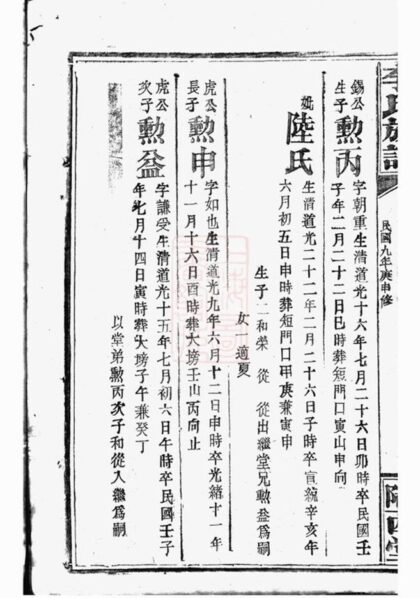 李氏族譜
民國九年庚申修
錫公
生子
勳丙
字朝重生清道光十六年七月二十六日卯時卒民國壬
子年二月二十二日巳時葬短門口寅山申向
妣
陸氏
生清道光二十二年二月二十六日子時卒宣統辛亥年
六月初五日申時葬短門口甲庚兼寅申
生子二和榮 從 從出繼堂兄勳益爲嗣
女一適夏
虎公
長子
勳申
字如也生清道光九年六月十二日申時卒光緒十一年
十一月十六日酉時葬大塝壬山丙向止
虎公
次子
勳益
字謙受生清道光十五年七月初六日午時卒民國壬子
年七月十四日寅時葬大塝子午兼癸丁
以堂弟勳丙次子和從入繼爲嗣